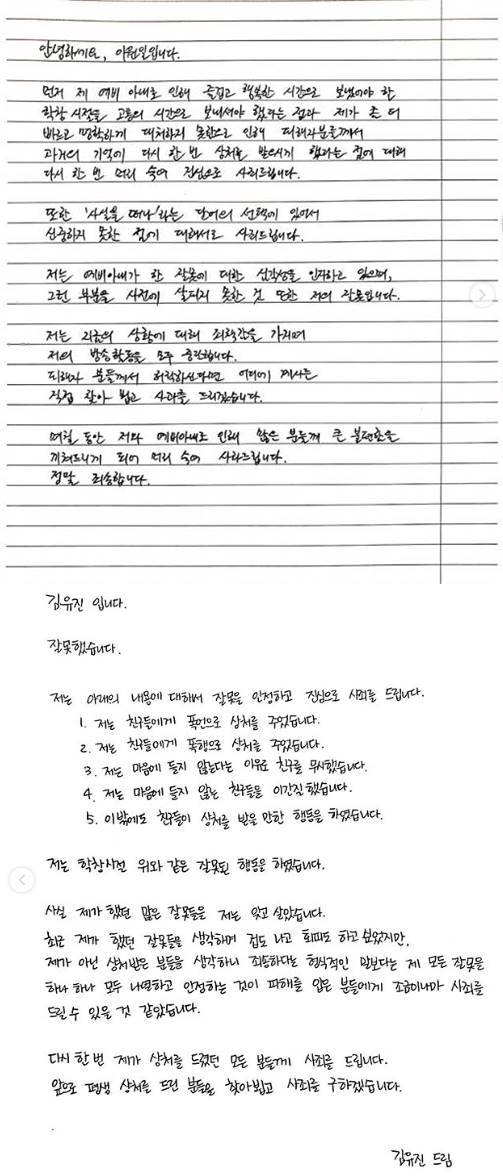 안녕하세요, 이원일입니다.
먼저 제 예비 아내로 인해 즐겁고 행복한 시간으로 보냈어야 한
학창 시절을 고통의 시간으로 보내셔야 했다는 점과 제가 좀 더
바르고 명확하게 대처하지 못함으로 인해 피해자분들께서
과거의 기억에 다시 한 번 상처를 받으시게 했다는 점에 대해
다시 한 번 머리 숙여 진심으로 사죄드립니다.
또한 '사실을 떠나'라는 단어의 선택에 있어서
신중하지 못한 점에 대해서도 사죄드립니다.
저는 예비아내가 한 잘못에 대한 심각성을 인지하고 있으며,
그런 부분을 사전에 살피지 못한 것 또한 저의 잘못입니다.
저는 지금의 상황에 대해 죄책감을 가지며
저의 방송활동을 모두 중단합니다.
피해자 분들께서 허락하신다면 어디에 계시든
직접 찾아 뵙고 사과를 드리겠습니다.
며칠 동안 저와 예비아내로 인해 많은 분들께 큰 불편함을
끼쳐드리게 되어 머리 숙여 사과드립니다.
정말 죄송합니다.
김유진 입니다.
잘못했습니다.
저는 아래의 내용에 대해서 잘못을 인정하고 진심으로 사죄를 드립니다.
1. 저는 친구들에게 폭언으로 상처를 주었습니다.
2. 저는 친구들에게 폭행으로 상처를 주었습니다.
3. 저는 마음에 들지 않는다는 이유로 친구를 무시했습니다.
4. 저는 마음에 들지 않는 친구들을 이간질했습니다.
5. 이 밖에도 친구들이 상처를 받을 만한 행동을 하였습니다.
저는 학창시절 위와 같은 잘못된 행동을 하였습니다.
사실 제가 했던 많은 잘못들을 저는 잊고 살았습니다.
최근 제가 했던 잘못들을 생각하며 겁도 나고 회피도 하고 싶었지만,
제가 아닌 상처받은 분들을 생각하니 죄송하다는 형식적인 말보다는 제 모든 잘못을
하나 하나 모두 나열하고 인정하는 것이 피해를 입은 분들에게 조금이나마 사죄를
드릴 수 있을 것 같았습니다.
다시 한 번 제가 상처를 드렸던 모든 분들께 사죄를 드립니다.
앞으로 평생 상처를 드린 분들을 찾아뵙고 사죄를 구하겠습니다.
김유진 드림